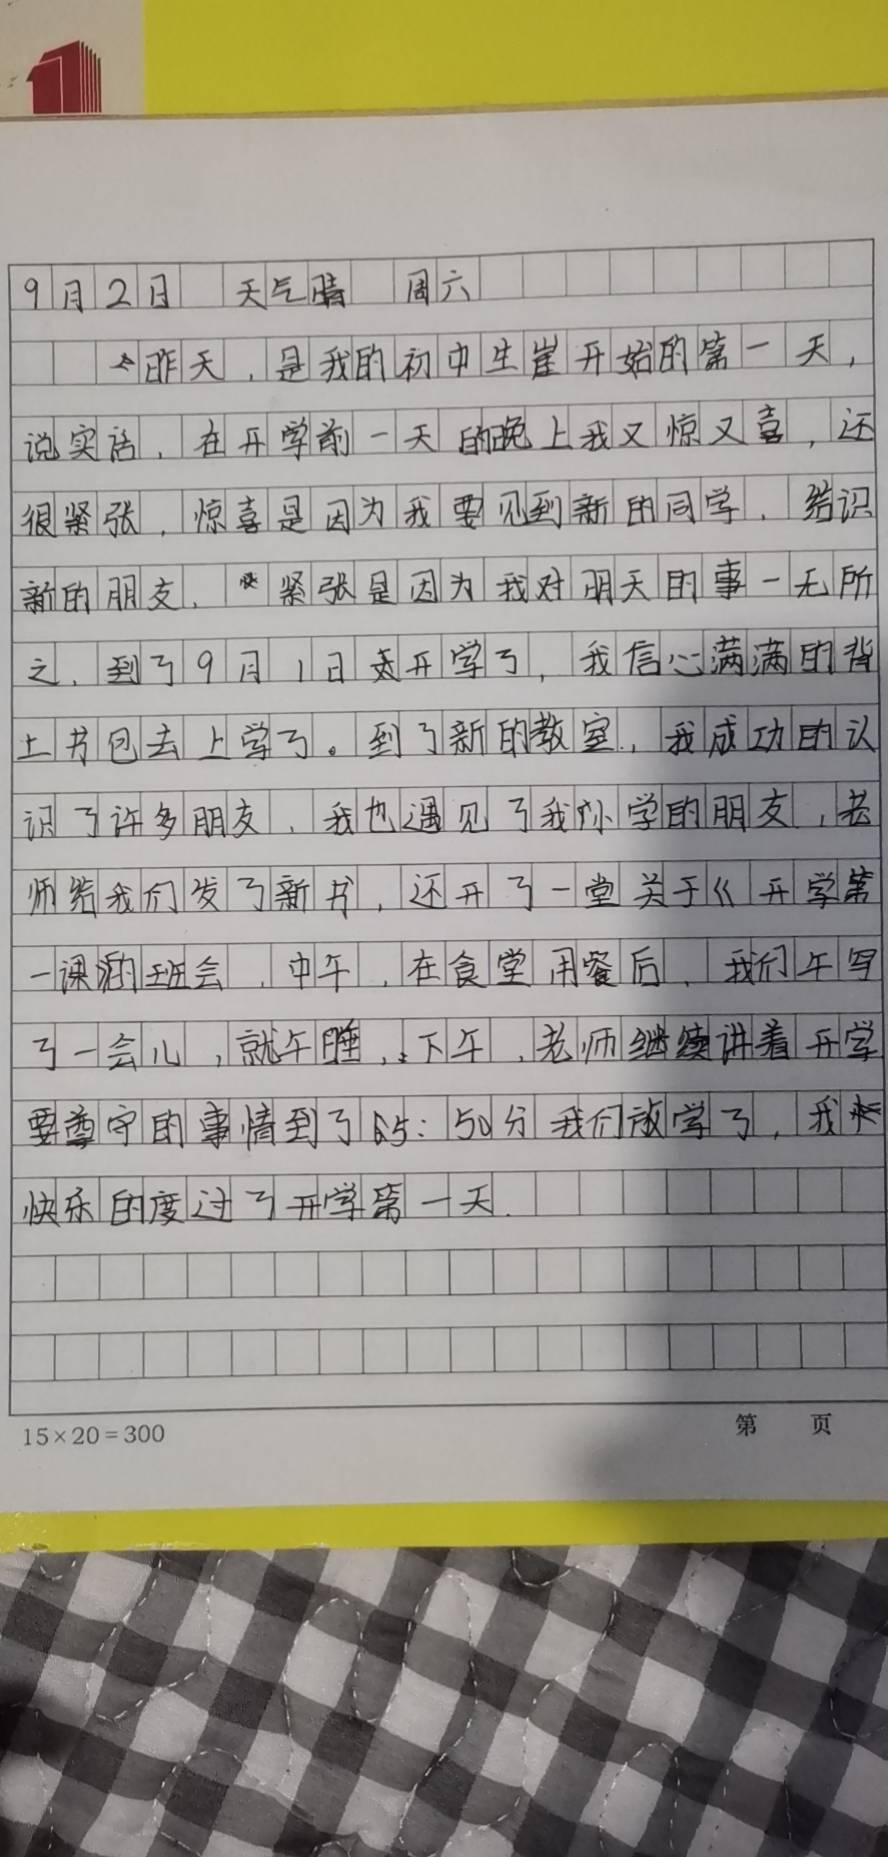 9月2日 天气晴 周六
昨天,是我的初中生崖开始的第一天,
说实话,在开学前一天的晚上我又惊又喜,还
很紧张,惊喜是因为我要见到新的同学,结识
新的朋友,紧张是因为我对明天的事一无所
之,到了9月1日开学了,我信心满满的背
上书包去上学了。到了新的教室,我成功的认
识了许多朋友,我也遇见了我小学的朋友,老
师给我们发了新书,还开了一堂关于《开学第
一课》的班会,中午,在食堂用餐后,我们午写
了一会儿,就午睡,下午,老师继续讲着开学
要尊守的事情到了5:50分我们放学了,我
快乐的度过了开学第一天.
15×20=300
第 页